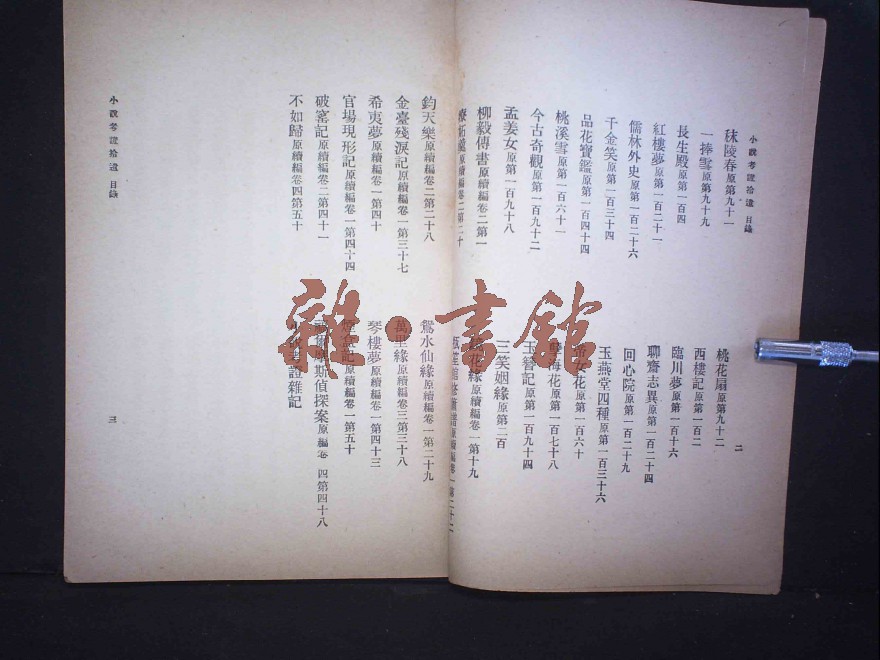 小說考證拾遺 目錄
二
秣陵春原第九十一
桃花扇原第九十二
一捧雪原第九十九
西樓記原第一百二
長生殿原第一百四
臨川夢原第一百十六
紅樓夢原第一百二十一
聊齋志異原第一百二十四
儒林外史原第一百二十六
回心院原第一百二十九
千金笑原第一百三十四
玉燕堂四種原第一百三十六
品花寶鑑原第一百四十四
女花原第一百六十
桃溪雪原第一百六十一
海花原第一百七十八
今古奇觀原第一百九十二
玉簪記原第一百九十四
孟姜女原第一百九十八
三笑姻緣原第二百
柳毅傳書原續編卷二第一
花緣原續編卷一第十九
原續編卷二第二十
瓶笙館修簫譜原續編卷一第二十二
鈞天樂原續編卷二第二十八
鴛水仙緣原續編卷一第二十九
金臺殘淚記原續編卷一第三十七
萬里緣原續編卷三第三十八
希夷夢原續編卷一第四十
琴樓夢原續編卷一第四十三
官場現形記原續編卷一第四十四
盒記原續編卷一第五十
破窰記原續編卷二第四十一
福爾摩斯偵探案原編卷四第四十八
不如歸原續編卷四第五十
小說考證雜記
小說考證拾遺 目錄
三
雜·書館